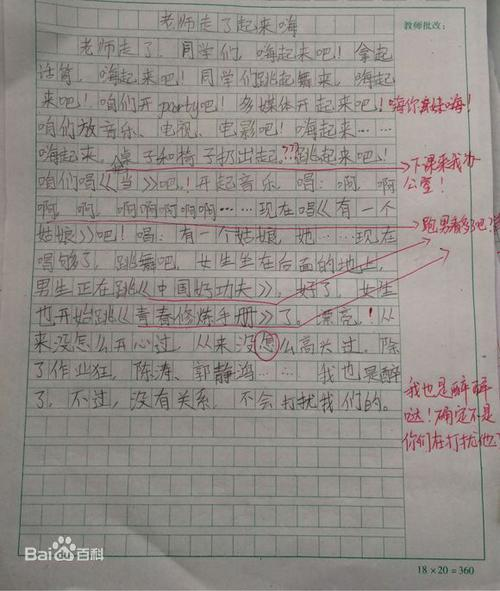 老师走了起来嗨
教师批改:
老师走了,同学们,嗨起来吧!拿起
话筒,嗨起来吧!同学们跳起舞来,嗨起
来吧!咱们开party吧!多媒体开起来吧!
嗨你妹嗨!
咱们放音乐、电视、电影吧!嗨起来……
嗨起来,桌子和椅子扔出起,???跳起来吧!
下课来我办
公室!
咱们唱《当》吧!开起音乐,唱:啊,啊
啊,啊,啊啊啊啊啊……现在唱《有一个
跑男看多了吧?
姑娘》吧!唱:有一个姑娘,她……现在
唱够了,跳舞吧,女生坐在后面的地上,
男生正在跳《中国好功夫》,好了,女生
也开始跳《青春修炼手册》了。漂亮!从
来没怎么开心过,从来没怎么高兴过,除
了作业狂,陈涛、郭静鸿……我也是醉
了,不过,没有关系,不会打扰我们的。
我也是醉醉
哒!确定不是
你们在打扰他?
Bai百科
18×20=360